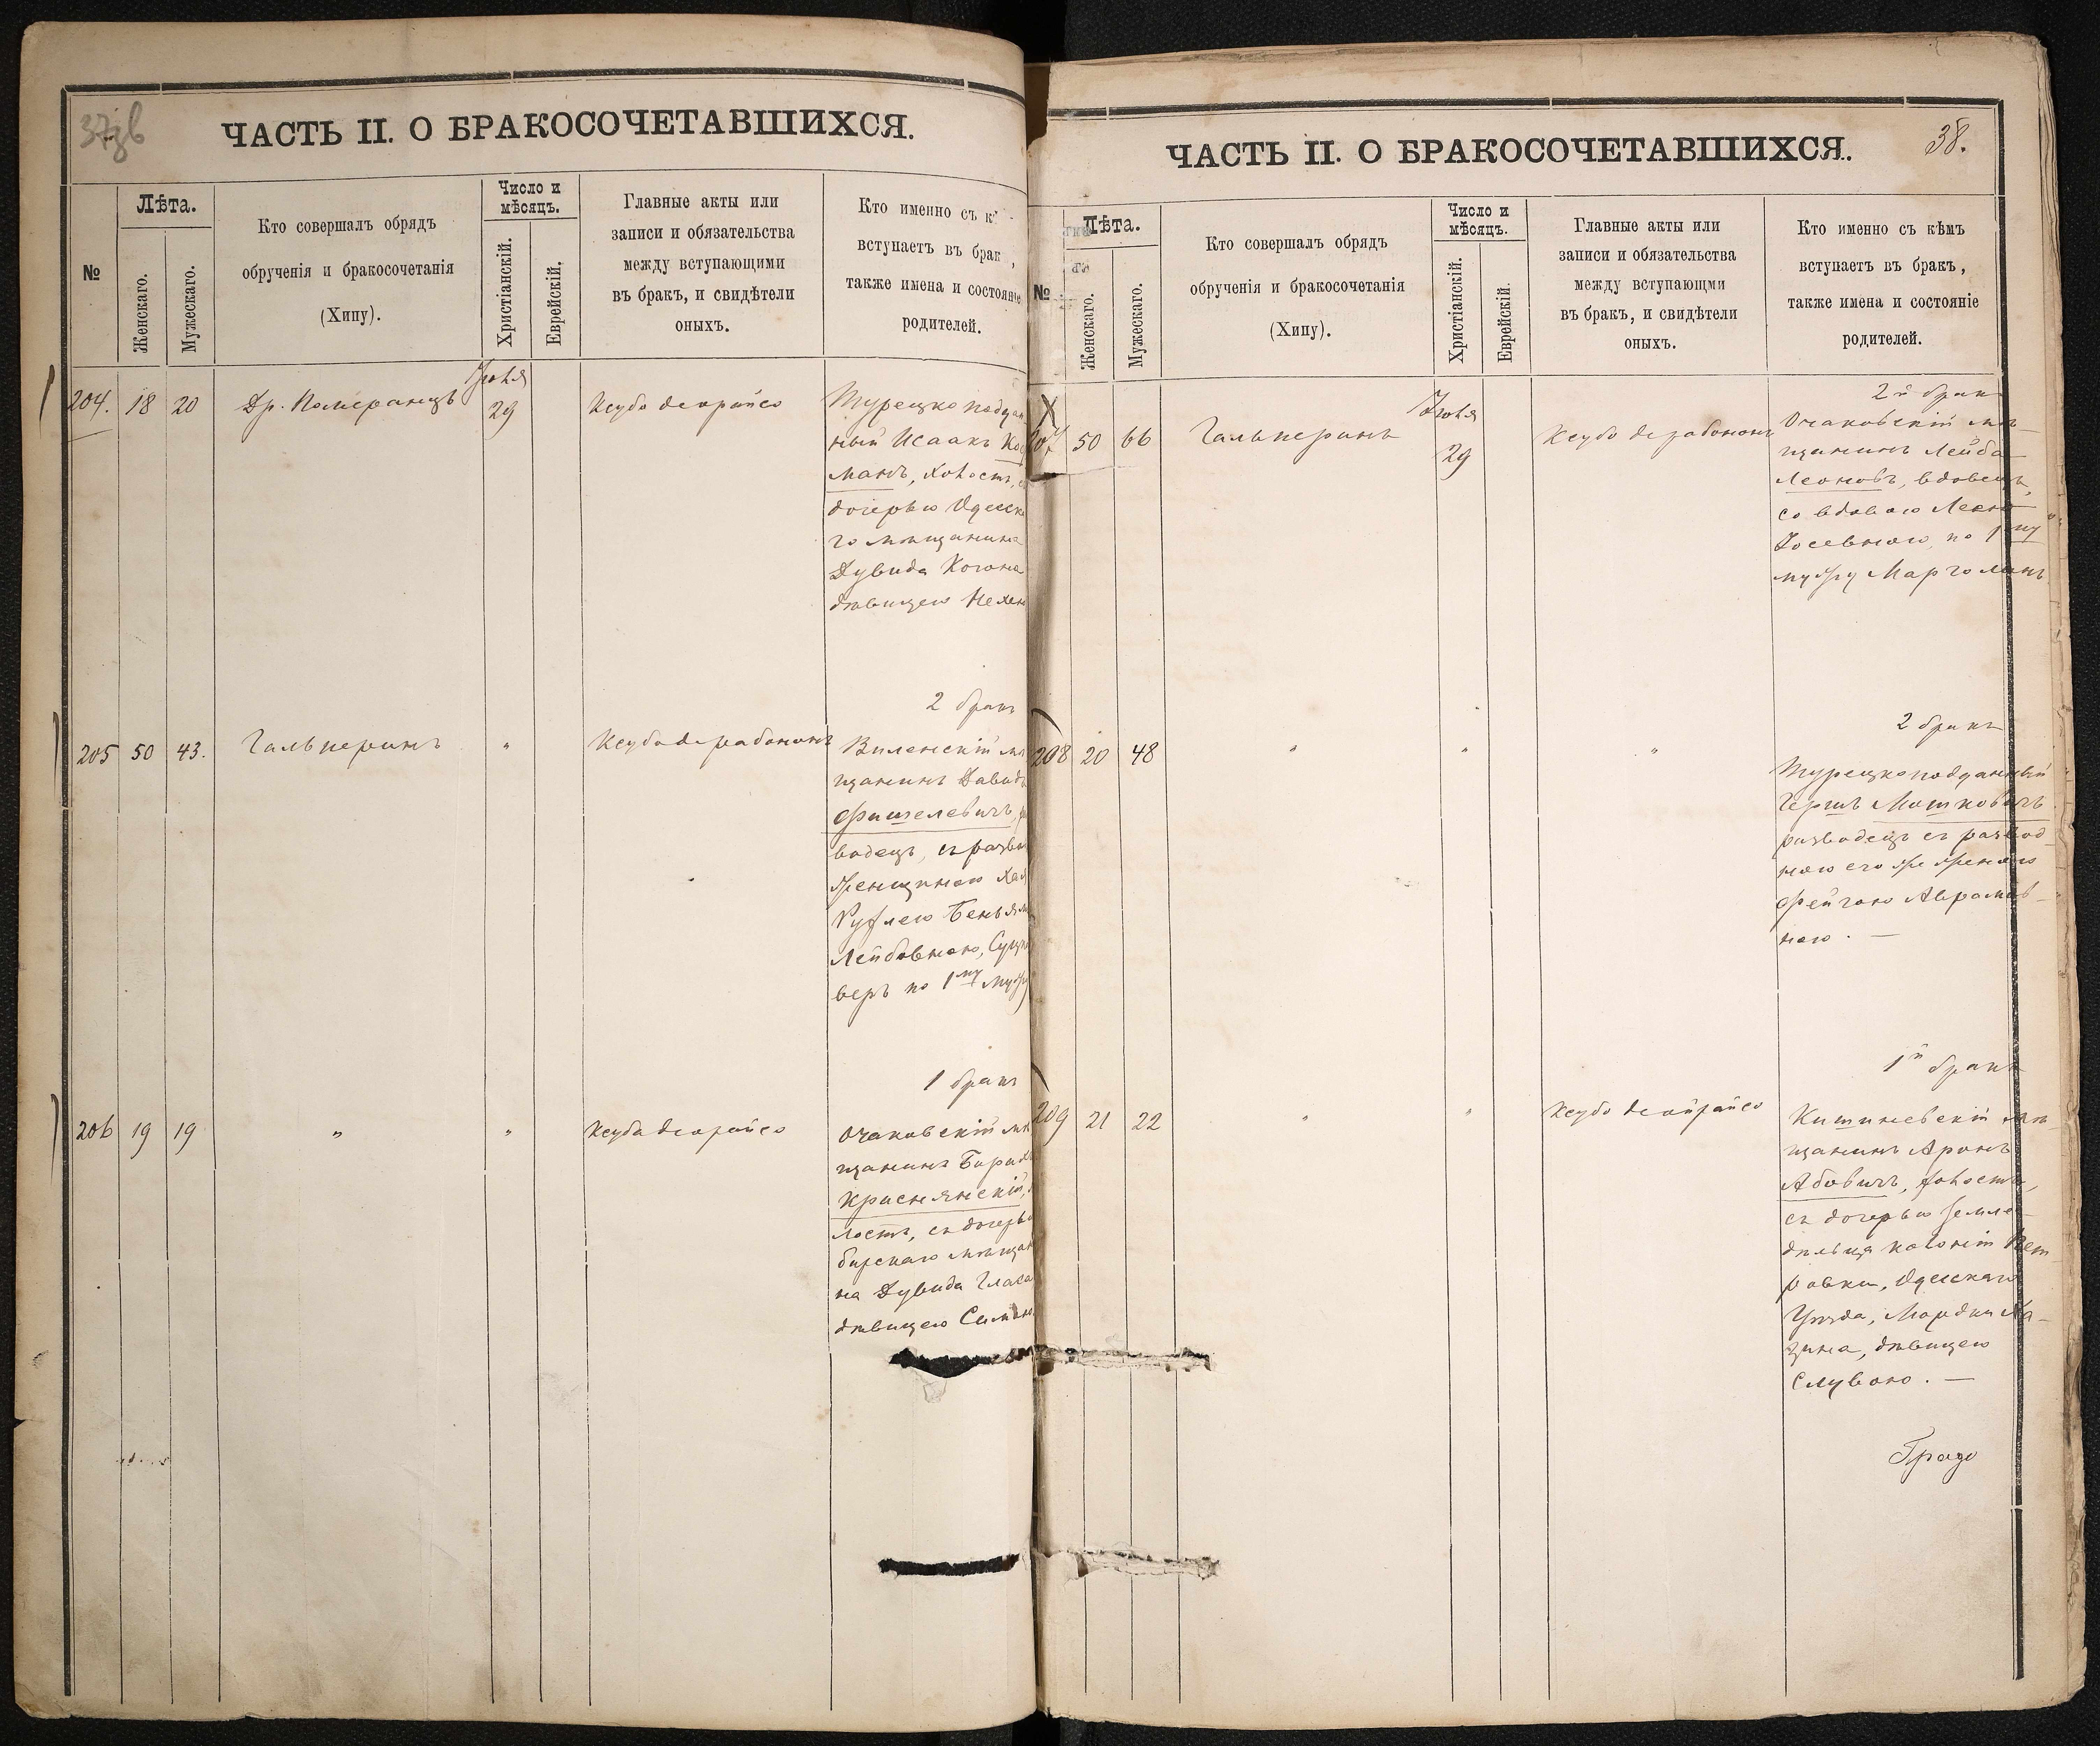 37зв
ЧАСТЬ II. О БРАКОСОЧЕТАВШИХСЯ.
№
Лѣта.
Женскаго.
Мужескаго.
Кто совершалъ обрядъ
обрученія и бракосочетанія
(Хипу).
Число и
мѣсяцъ.
Христіанскій.
Еврейскій.
Главные акты или
записи и обязательства
между вступающими
въ бракъ, и свидѣтели
оныхъ.
Кто именно съ к
вступаетъ въ брак ,
также имена и состояніе
родителей.
204. 18 20 Др. Померанцъ Іюля 29 Ксубо деорайсо
Турецко поддан
ный Исаакъ Ко
манъ, холостъ, с
дочерью Одесска
го мѣщанина
Дувида Когана
дѣвицею Нехам
2 бракъ
205 50 43. Гальперинъ " Ксубо дерабононъ
Виленскій мѣ
щанинъ Давидъ
Фишелевичъ, ра
водецъ, съ разво
женщиною Хая
Руфлею Беньям
Лейбовною, Суц
веръ по 1му мужу
1 бракъ
206 19 19 " " Ксубо деорайсо
Очаковскій мѣ
щанинъ Борисъ
Краснянскій,
лостъ, съ дочерью
бирскаго мѣщан
на Дувида Глаза
дѣвицею Симон
ЧАСТЬ II. О БРАКОСОЧЕТАВШИХСЯ.
38.
№
Лѣта.
Женскаго.
Мужескаго.
Кто совершалъ обрядъ
обрученія и бракосочетанія
(Хипу).
Число и
мѣсяцъ.
Христіанскій.
Еврейскій.
Главные акты или
записи и обязательства
между вступающми
въ бракъ, и свидѣтели
оныхъ.
Кто именно съ кѣмъ
вступаетъ въ бракъ,
также имена и состояніе
родителей.
2й бракъ
207 50 66 Гальперинъ Іюля 29 Ксубо дерабононъ
Очаковскій мѣ-
щанинъ Лейба
Леоновъ, вдовецъ,
со вдовою Леею
Іосевною, по 1му
мужу Марголинъ
2 бракъ
208 20 48 " " "
Турецкоподданный
Гершъ Мошковичъ
разводецъ съ развод
ною его же женою
Фейгою Абрамов-
ною. —
1й бракъ
209 21 22 " " Ксубо деойрайсо
Кишиневскій мѣ-
щанинъ Аронъ
Абовичъ, холостъ,
съ дочерью земле-
дѣльца колоніи
ровки, Одесскаго
Уѣзда, Мордки Ха-
зина, дѣвицею
Слувою. —
Градо